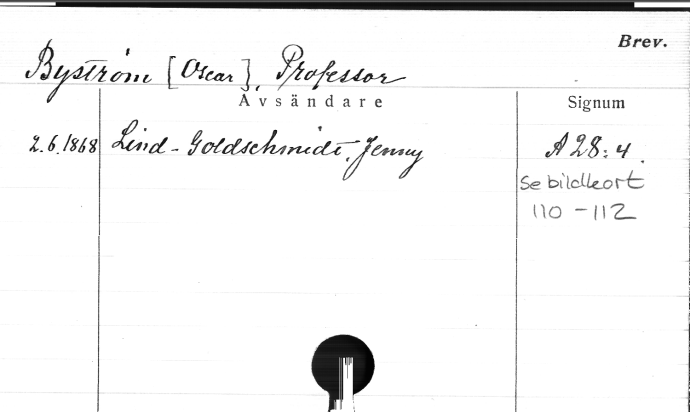 Brev.
Byström [Oscar], Professor
Avsändare Signum
2.6.1868 Lind-Goldschmidt, Jenny A 28:4.
Se bildkort
110-112